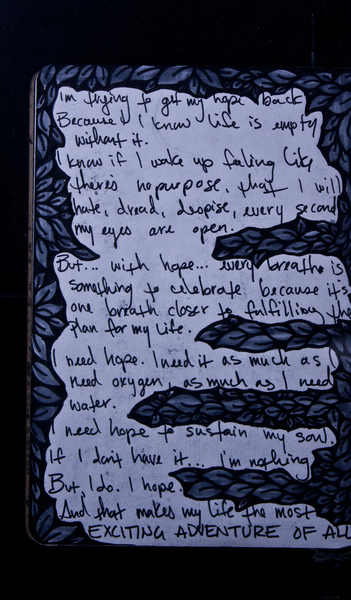 I'm trying to get my hope back
Because I know life is empty
without it.
I know if I wake up feeling like
theres no purpose, that I will
hate, dread, despise, every second
my eyes are open.
But... with hope... every breathe is
something to celebrate because it's
one breath closer to fulfilling the
plan for my life.
I need hope. I need it as much as I
need oxygen, as much as I need
water.
I need hope to sustain my soul.
If I don't have it... I'm nothing
But I do. I hope.
And that makes my life the most
EXCITING ADVENTURE OF ALL